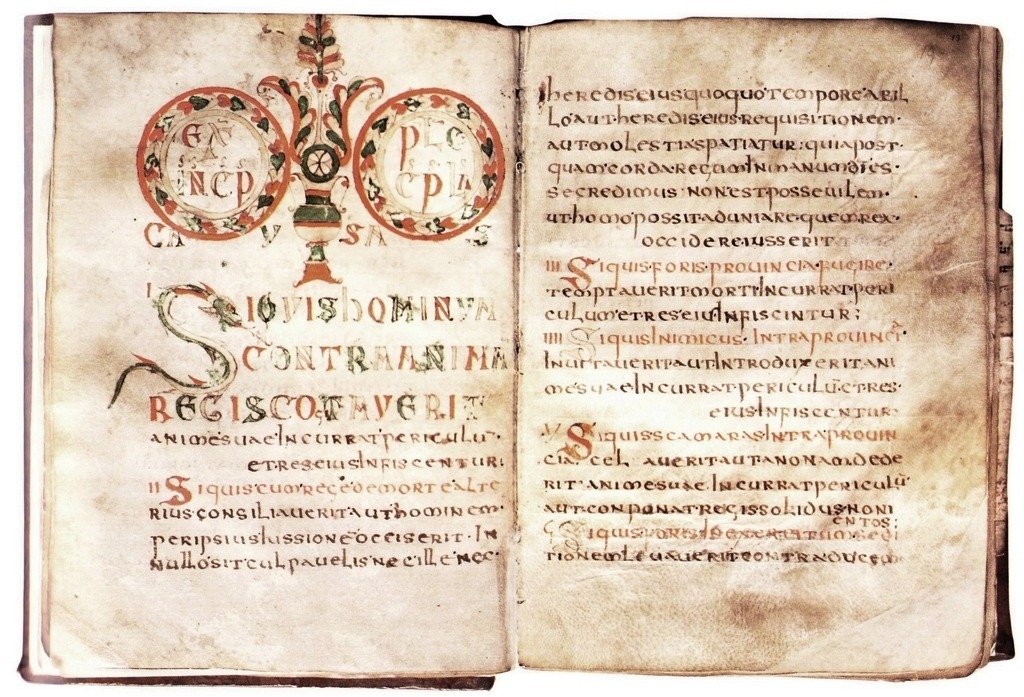 EX
INCP
PLC
CPL
CA V SA S
I SIQVISHOMINVM
CONTRAANIMĀ
REGISCOGTAVERIT
animesuaeIncurratpericulū
etreseiusInfiscentur;
II Siquiscumregedemortealte
riusconsiliaueritauthominem
peripsiusIussioneocciserit In
nullositculpauelisnecillenec
heredeseiusquoquotemporeabil
loautheredeseiusrequisitionem
autmolestiaspatiatur; quiapost
quamcordaregumInmanumdies
secredimus nonestposseuilem
uthomopossitaduniarequemrex
occidereiusserit
III Siquisforisprouinciafugire
temptaueritmortiIncurratperi
culumetreseiusInfiscintur;
IIII SiquisInimicus Intraprouinciā
InuitaueritautIntroduxeritani
mesuaeIncurratpericulūetres
eiusInfiscentur
V SiquisscamarasIntraprouin
cia cel aueritautanonamdede
rit animesuae Incurratpericulū
autconponatregissolidusnoni
entos;
tionemleuaueritcontraducem